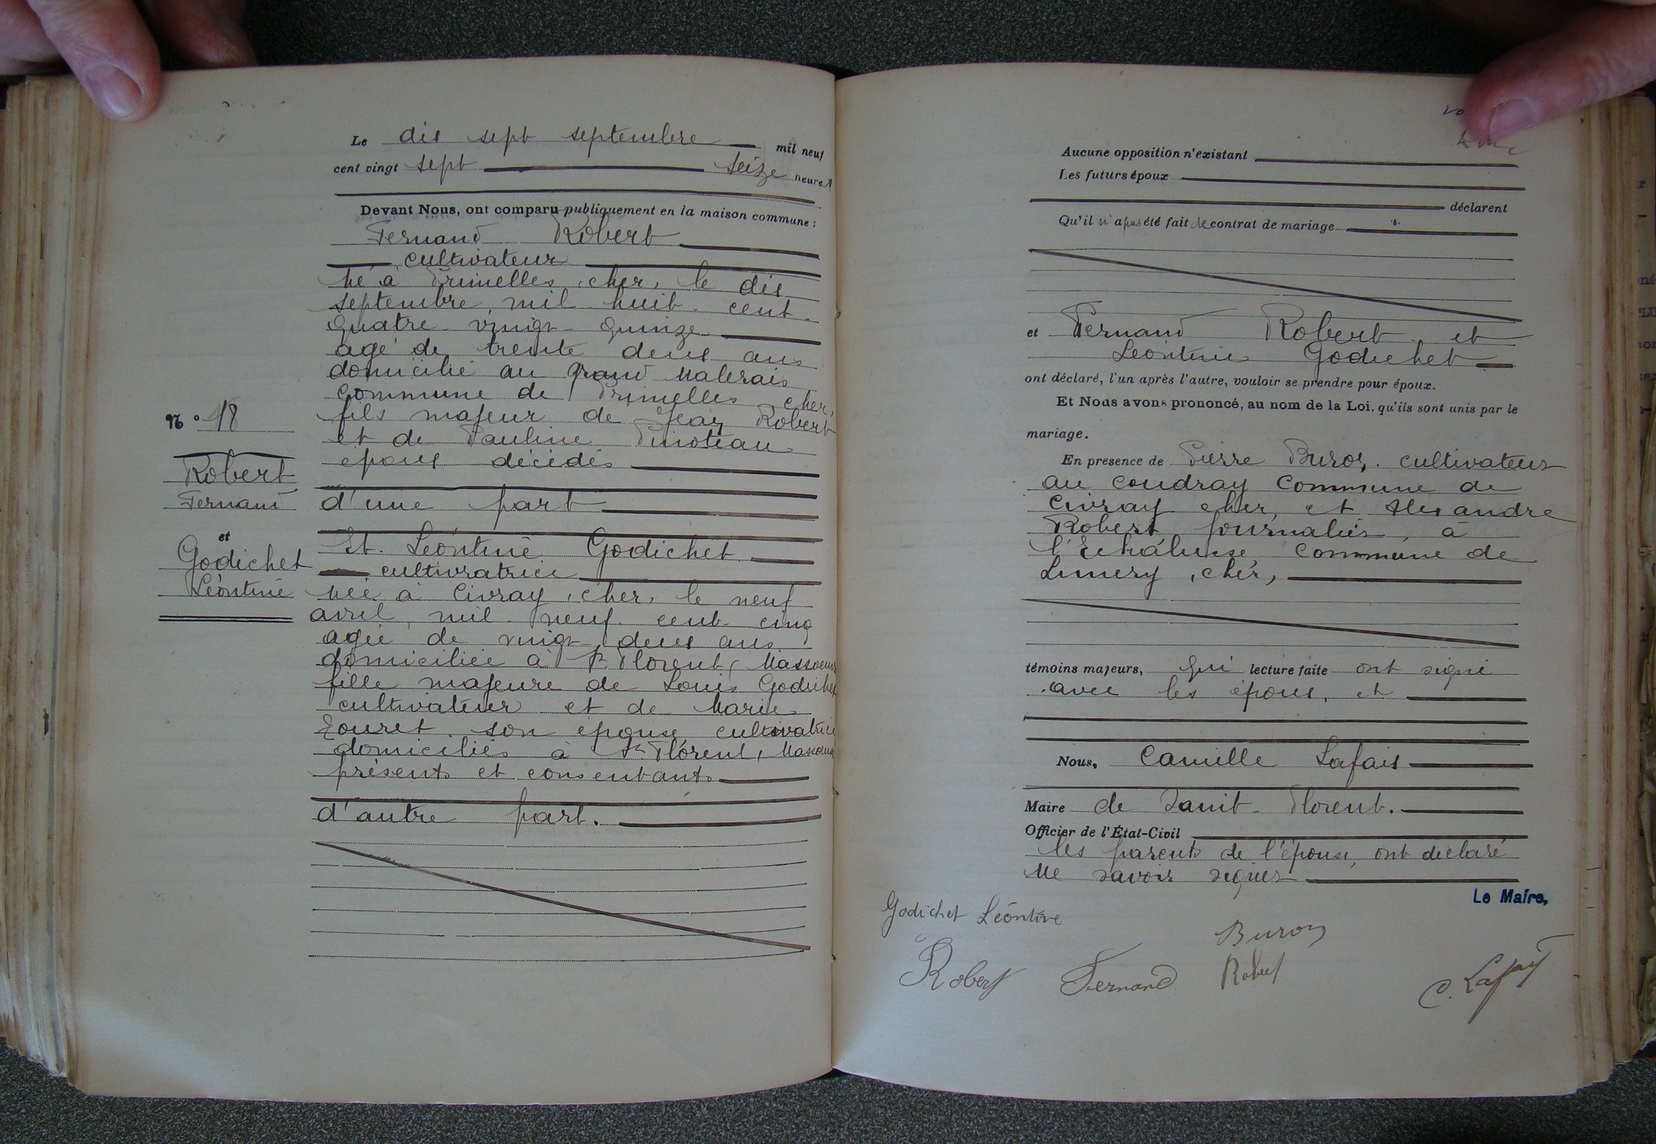 Le dix sept septembre mil neuf
cent vingt sept seize heures
Devant Nous, ont comparu publiquement en la maison commune :
Fernand Robert
cultivateur
né à Primelles, cher, le dix
septembre, mil huit cent
quatre vingt quinze
agé de trente deux ans
domicilié au grand Malerais
commune de Primelles, cher,
fils majeur de Jean Robert
et de Pauline Pinoteau
époux décédés
d'une part
Et Léontine Godichet
cultivatrice
née à Civray, cher, le neuf
avril, mil neuf cent cinq
agée de vingt deux ans
domiciliée à St Florent, Massoeuvre
fille majeure de Louis Godichet
cultivateur et de Marie
son épouse cultivatrice
domiciliés à St Florent, Massoeuvre
présents et consentants
d'autre part.
N° 18
Robert
Fernand
et
Godichet
Léontine
Aucune opposition n'existant
Les futurs époux
déclarent
Qu'il n'a pas été fait de contrat de mariage
et Fernand Robert et
Léontine Godichet
ont déclaré, l'un après l'autre, vouloir se prendre pour époux.
Et Nous avons prononcé, au nom de la Loi, qu'ils sont unis par le
mariage.
En presence de Pierre Buron, cultivateur
au coudray commune de
Civray cher, et Alexandre
Robert journalier, à
l'Echalusse, commune de
Limery, cher,
témoins majeurs, qui lecture faite ont signé
avec les époux, et
Nous, Camille Lafaix
Maire de Saint Florent.
Officier de l'État-Civil
les parents de l'épouse, ont déclaré
ne savoir signer
Le Maire,
Godichet Léontine
Buron
Robert Fernand Robert
C. Lafaix